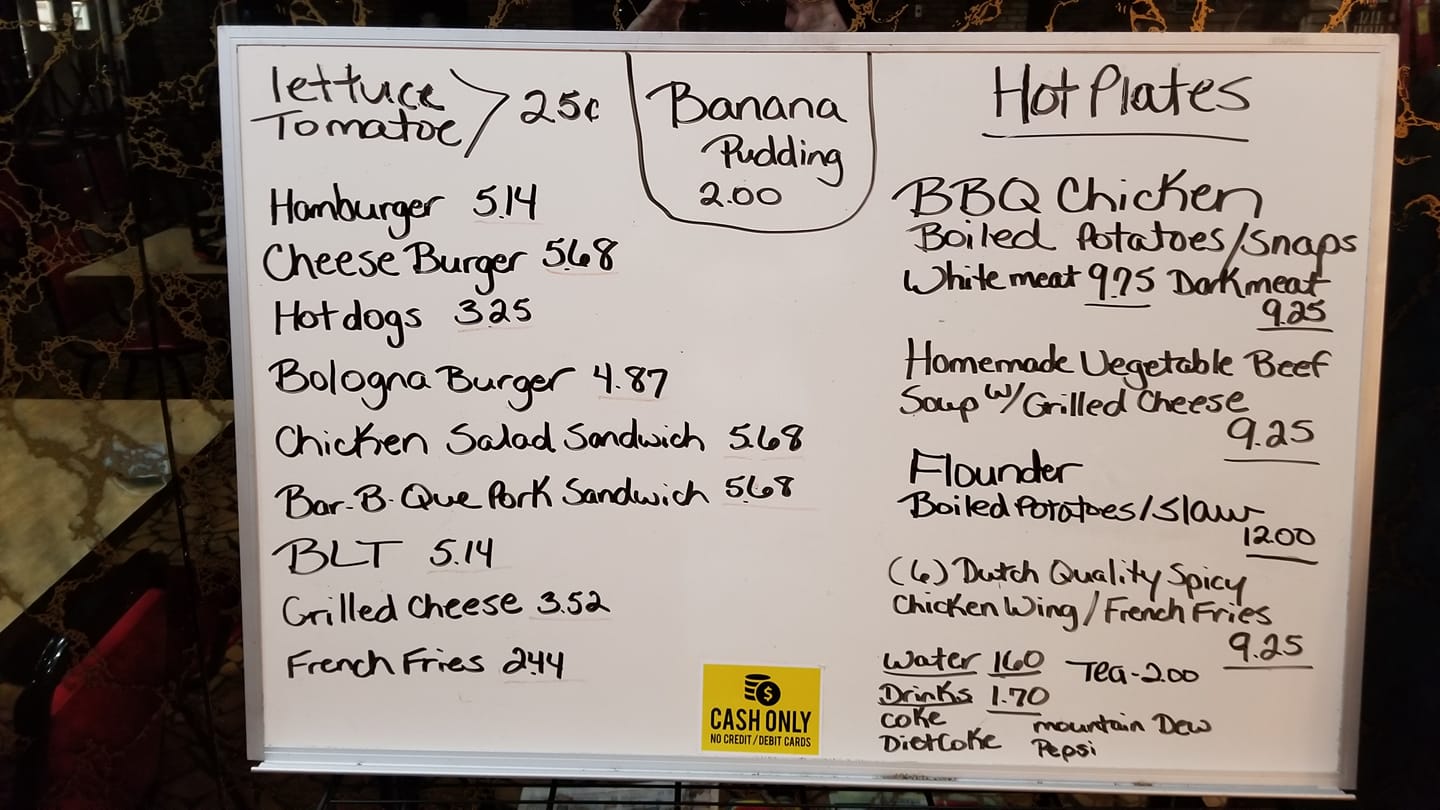 lettuce
Tomatoe
25¢
Hamburger 5.14
Cheese Burger 5.68
Hotdogs 3.25
Bologna Burger 4.87
Chicken Salad Sandwich 5.68
Bar-B-Que Pork Sandwich 5.68
BLT 5.14
Grilled Cheese 3.52
French Fries 2.44
Banana
Pudding
2.00
CASH ONLY
NO CREDIT/DEBIT CARDS
Hot Plates
BBQ Chicken
Boiled Potatoes/Snaps
White meat 9.75 Dark meat
9.25
Homemade Vegetable Beef
Soup w/Grilled Cheese
9.25
Flounder
Boiled Potatoes/Slaw
12.00
(6) Dutch Quality Spicy
Chicken Wing/French Fries
9.25
Water 1.60 Tea-2.00
Drinks 1.70
Coke mountain Dew
Diet Coke Pepsi